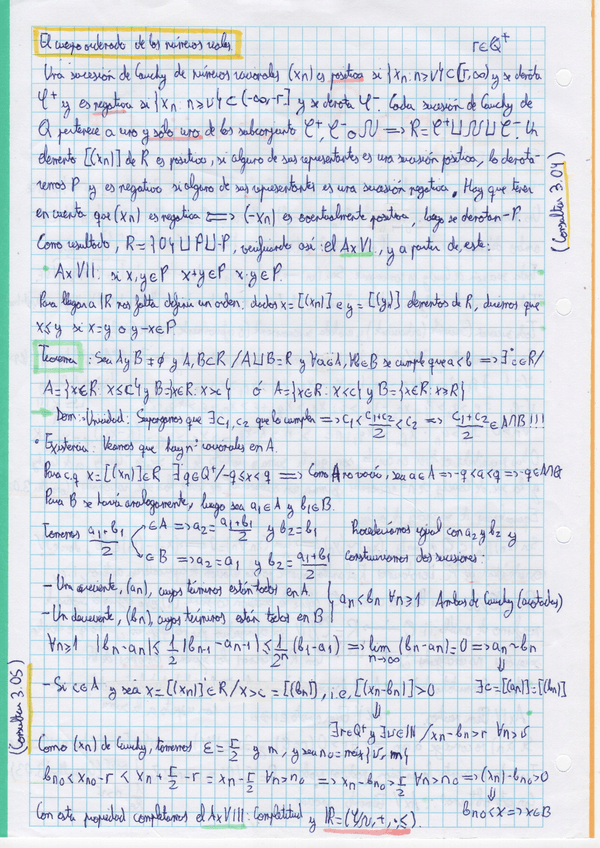 El cuerpo ordenado de los números reales.
r∈Q⁺
Una sucesión de Cauchy de números racionales (xn) es positiva si {xn: n≥ν}⊂[r,∞) y se denota
𝒞⁺ y es negativa si {xn: n≥ν}⊂(-∞,-r] y se denota 𝒞⁻. Cada sucesión de Cauchy de
Q pertenece a uno y sólo uno de los subconjunto 𝒞⁺, 𝒞⁻ o 𝒩 ⟹ R=𝒞⁺⊔𝒩⊔𝒞⁻. Un
elemento [(xn)] de R es positivo, si alguno de sus representantes es una sucesión positiva, lo denota-
remos P y es negativo si alguno de sus representantes es una sucesión negativa. Hay que tener
en cuenta que (xn) es negativa ⟺ (-xn) es eventualmente positiva, luego se denotan -P.
(Consultar 3.04)
Como resultado, R={0}⊔P⊔-P, verificando así el AxVI, y a partir de este:
• AxVII. si x,y∈P x+y∈P x·y∈P.
Para llegar a ℝ nos falta definir un orden. dados x=[(xn)] e y=[(yn)] elementos de R, diremos que
x≤y si x=y o y-x∈P.
Teorema: Sea A y B ≠∅ y A,B⊂R / A⊔B=R y ∀a∈A, ∀b∈B se cumple que a<b ⟹ ∃¹c∈R/
A={x∈R: x≤c} y B={x∈R: x>c} ó A={x∈R: x<c} y B={x∈R: x≥c}
→ Dem: • Unicidad: Supongamos que ∃c₁,c₂ que lo cumplen ⟹ c₁<(c₁+c₂)/2<c₂ ⟹ (c₁+c₂)/2∈A∩B!!!
• Existencia: Veamos que hay nº racionales en A.
Para c.q x=[(xn)]∈R ∃q∈Q⁺/-q≤x<q ⟹ Como A no vacío, sea a∈A ⟹ -q<a<q ⟹ -q∈A∩Q
Para B se haría análogamente, luego sea a₁∈A y b₁∈B.
Tomemos (a₁+b₁)/2 ∈A ⟹ a₂=(a₁+b₁)/2 y b₂=b₁
∈B ⟹ a₂=a₁ y b₂=(a₁+b₁)/2
Procederíamos igual con a₂ y b₂ y
construiríamos dos sucesiones:
- Una creciente, (an), cuyos términos están todos en A.
- Un decreciente, (bn), cuyos términos están todos en B
an<bn ∀n≥1 Ambas de Cauchy (acotadas)
∀n≥1 |bn-an|≤1/2|bn-1-an-1|≤1/2ⁿ(b₁-a₁) ⟹ lim n→∞ (bn-an)=0 ⟹ an~bn
⇓
∃c=[(an)]=[(bn)]
- Si c∈A y sea x=[(xn)]∈R/x>c=[(bn)], i.e, [(xn-bn)]>0
⇓
∃r∈Q⁺ y ∃ν∈ℕ/xn-bn>r ∀n>ν
(Consultar 3.05)
Como (xn) de Cauchy, tomemos ε=r/2 y m, y sea n₀=máx{ν,m}
bn₀<xn₀-r<xn+r/2-r=xn-r/2 ∀n>n₀ ⟹ xn-bn₀>r/2 ∀n>n₀ ⟹ (xn)-bn₀>0
⇓
bn₀<x ⟹ x∈B
Con esta propiedad completamos el AxVIII: Completitud y ℝ=(𝒞/𝒩,+,·,≤).